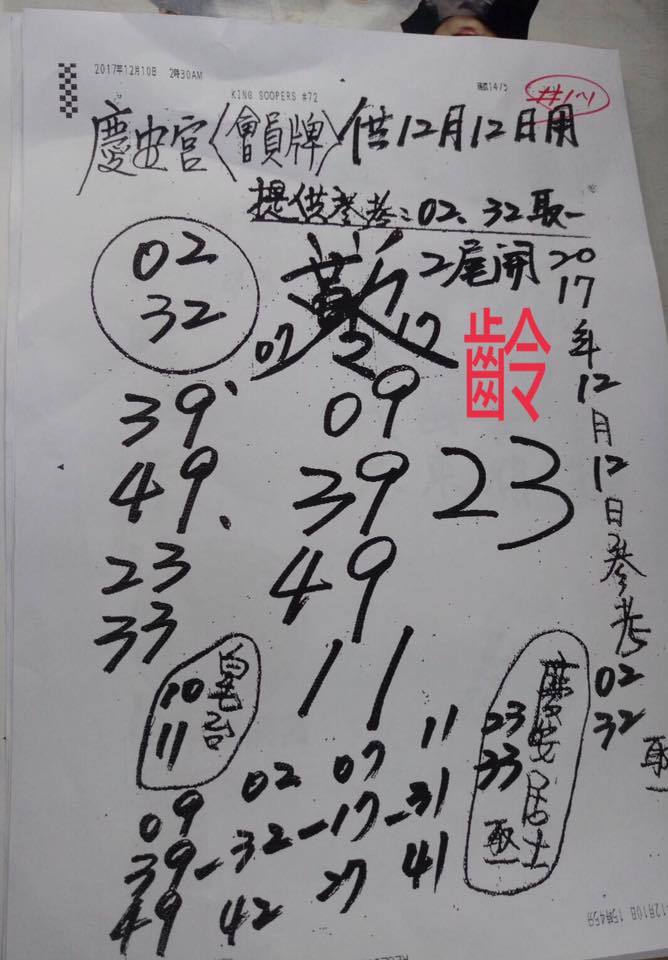 2017年12月10日 2時30AM
KING SOOPERS #72
慶安宮〈會員牌〉供12月12日用
提供參考:02、32取一
02
32
2尾開
07 2 17
齡
2017年12月12日參考
02
32
取一
39
49
23
33
09
39
49
23
11
10
11
慶安居士
23
33
取一
02 07 11
09
39-32-17-31
49 42 27 41
12月10日 15時45分